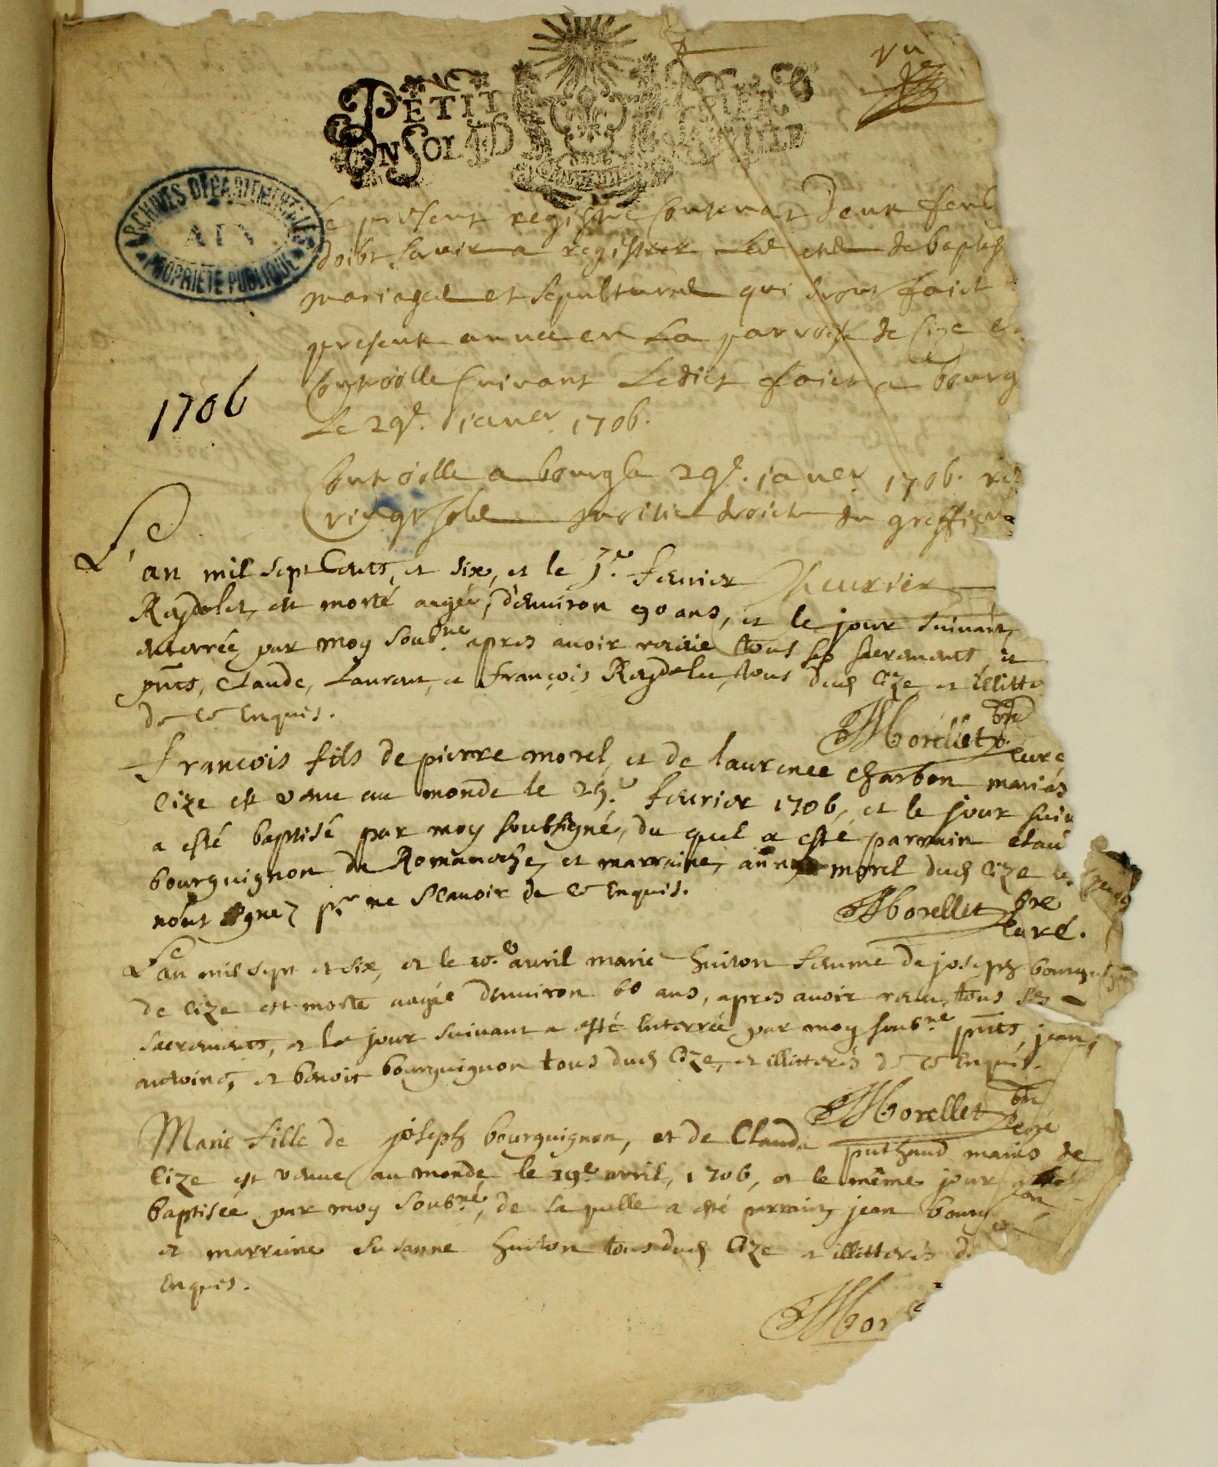 Vu
PETIT PAPIER
UN SOL LA FEUILLE
ARCHIVES DEPARTEMENTALES
AIN
PROPRIETE PUBLIQUE
Le present registre contenant deux feul
doibt servir a registrer les actes de baptes
mariages et sepultures qui seront faict
presente annee en La parroisse de Cize
Controolle suivant Ledict faict a bourg
Le 29e. janver 1706.
1706
Controolle a bourg le 29e. janver 1706.
vingt sols moitie droict du greffier
L'an mil sept Cents, et six, et le fevrier
est morte augée d'environ 90 ans, et le jour suivant
enterrée par moy soubné. apres avoir receue tous ses sacrements, et
pnts, Claude, Laurent, et françois tous dud Cize et illitte
de ce Enquis.
Morellet pbre
curé
françois fils de pierre morel, et de laurence charbon mariés
Cize est venu au monde le fevrier 1706, et le jour suiv
a esté baptisé par moy soubsigné, du quel a esté parrain clau
bourguignon de Romaneche, et marraine, anne morel dud Cize
non signez pr ne scavoir de ce Enquis.
Morellet pbre
curé.
L'an mil sept et six, et le 10e avril marie huiton femme de joseph bourg
de Cize est morte augée denviron 60 ans, apres avoir receu tous ses
sacrements, et le jour suivant a esté Enterrée par moy soubné. pnts, jean,
antoine, et benoit bourguignon tous dud Cize, et illitterés de ce Enquis.
Morellet pbre
curé
Marie fille de joseph bourguignon, et de Clauda puthaud mariés de
Cize est venue au monde le 19e avril, 1706, et le même jour a esté
baptisée par moy soubné, de laquelle a esté parrain jean bourg
et marraine susanne huiton tous dud Cize et illitterés d
Enquis.
Mor